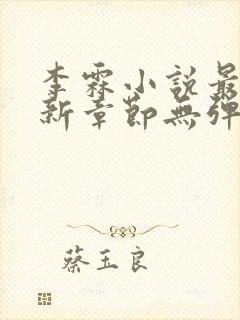 李霖小説最
新章節無彈
蔡玉良